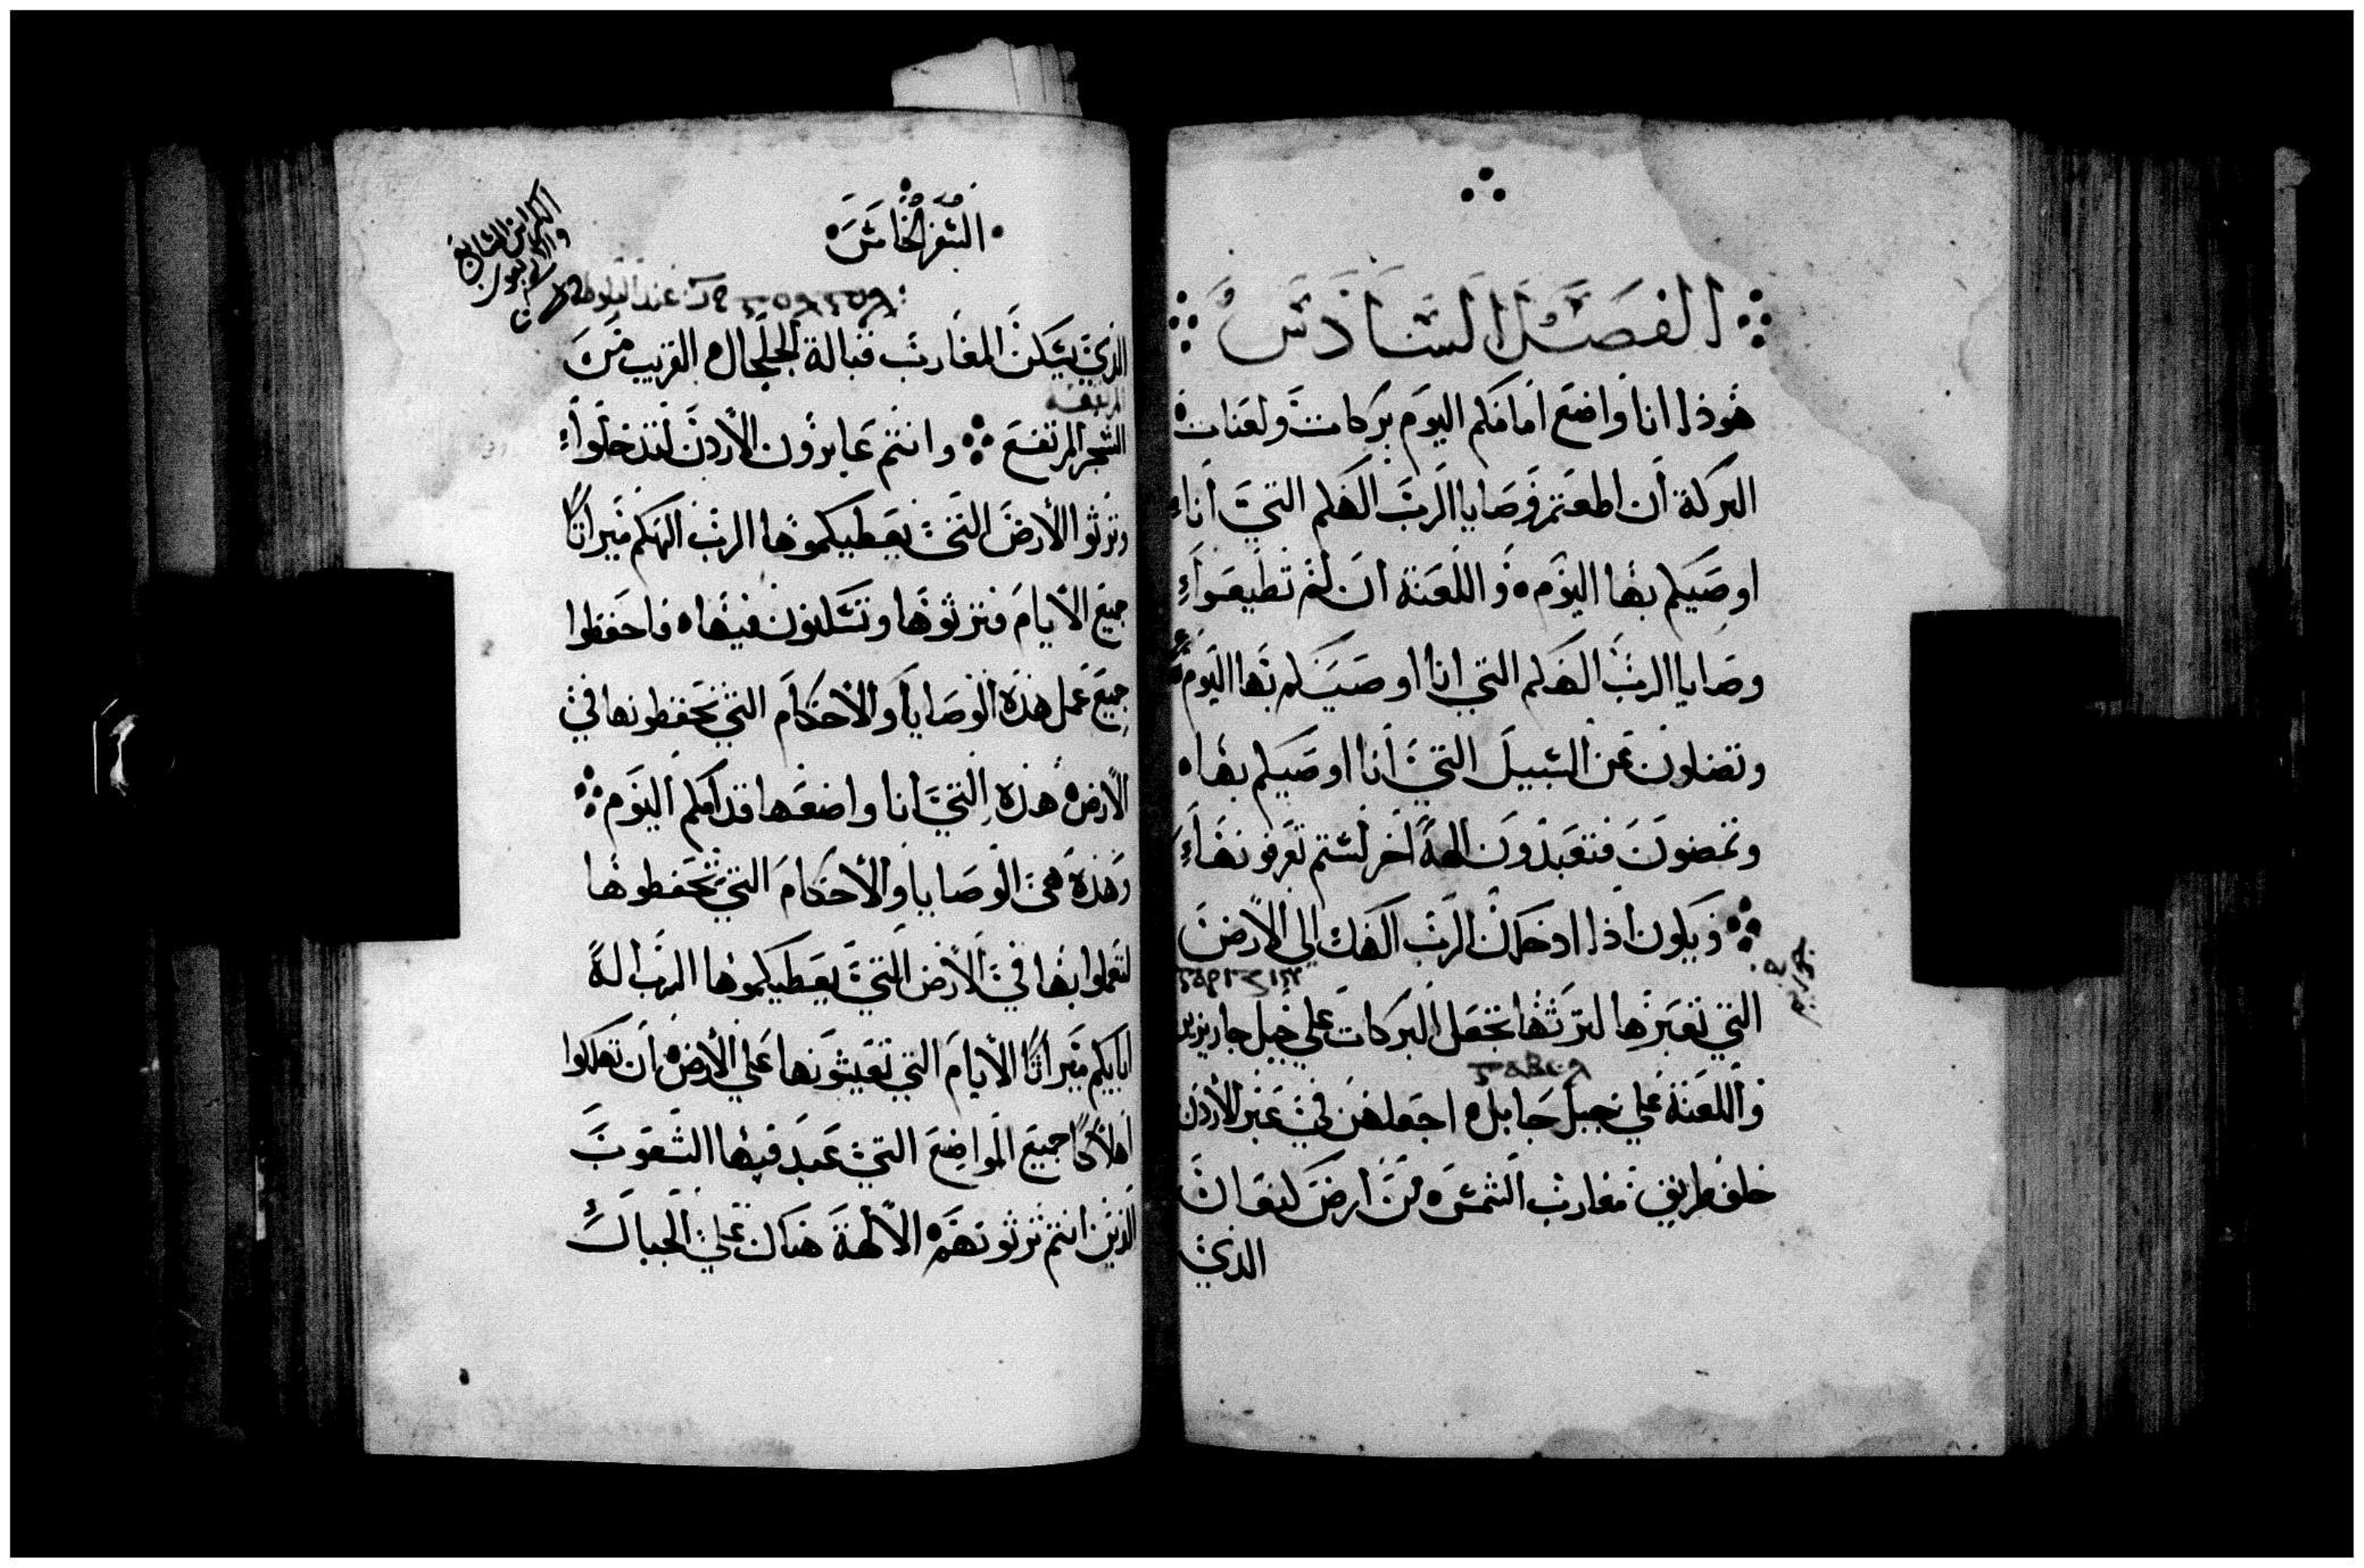 الفصل السادس
هوذا انا واضع امامكم اليوم بركات ولعنات
البركة أن اطعتم وصايا الرب الهكم التي أنا
اوصيكم بها اليوم ه واللعنة ان لم تطيعوا
وصايا الرب الهكم التي انا اوصيكم بها اليوم
وتضلون عن السبيل التي أنا اوصيكم بها ه
وتمضون فتعبدون الهةً اخر لستم تعرفونها
ويكون اذا ادخلك الرب الهك الي الأرض
التي تعبرها لترثها تجعل البركات علي جبل جاريزين
واللعنة علي جبل جابل ه اجعلهن في عبر الأردن
خلف طريق مغارب الشمس ه من أرض كنعان
الذي
السفر الخامس
عند البلوطة
الذي يسكن المغارب قبالة الجلجال القريب من
المرتفعة
الشجر المرتفع وانتم عابرون الأردن لتدخلوا
وترثوا الأرض التي يعطيكموها الرب الهكم ميراثا
جميع الأيام فترثوها وتسكنون فيها ه فاحفظوا
جميع عمل هذه الوصايا والأحكام التي تحفظونها في
الأرض هذه التي أنا واضعها قدامكم اليوم
وهذه هي الوصايا والأحكام التي تحفظوها
لتعملوا بها في الأرض التي يعطيكموها الرب اله
ابايكم ميراثا الأيام التي تعيشونها علي الأرض ان تهلكوا
اهلاكا جميع المواضع التي عبد فيها الشعوب
الذين انتم ترثوتهم الآلهة هناك علي الجبال